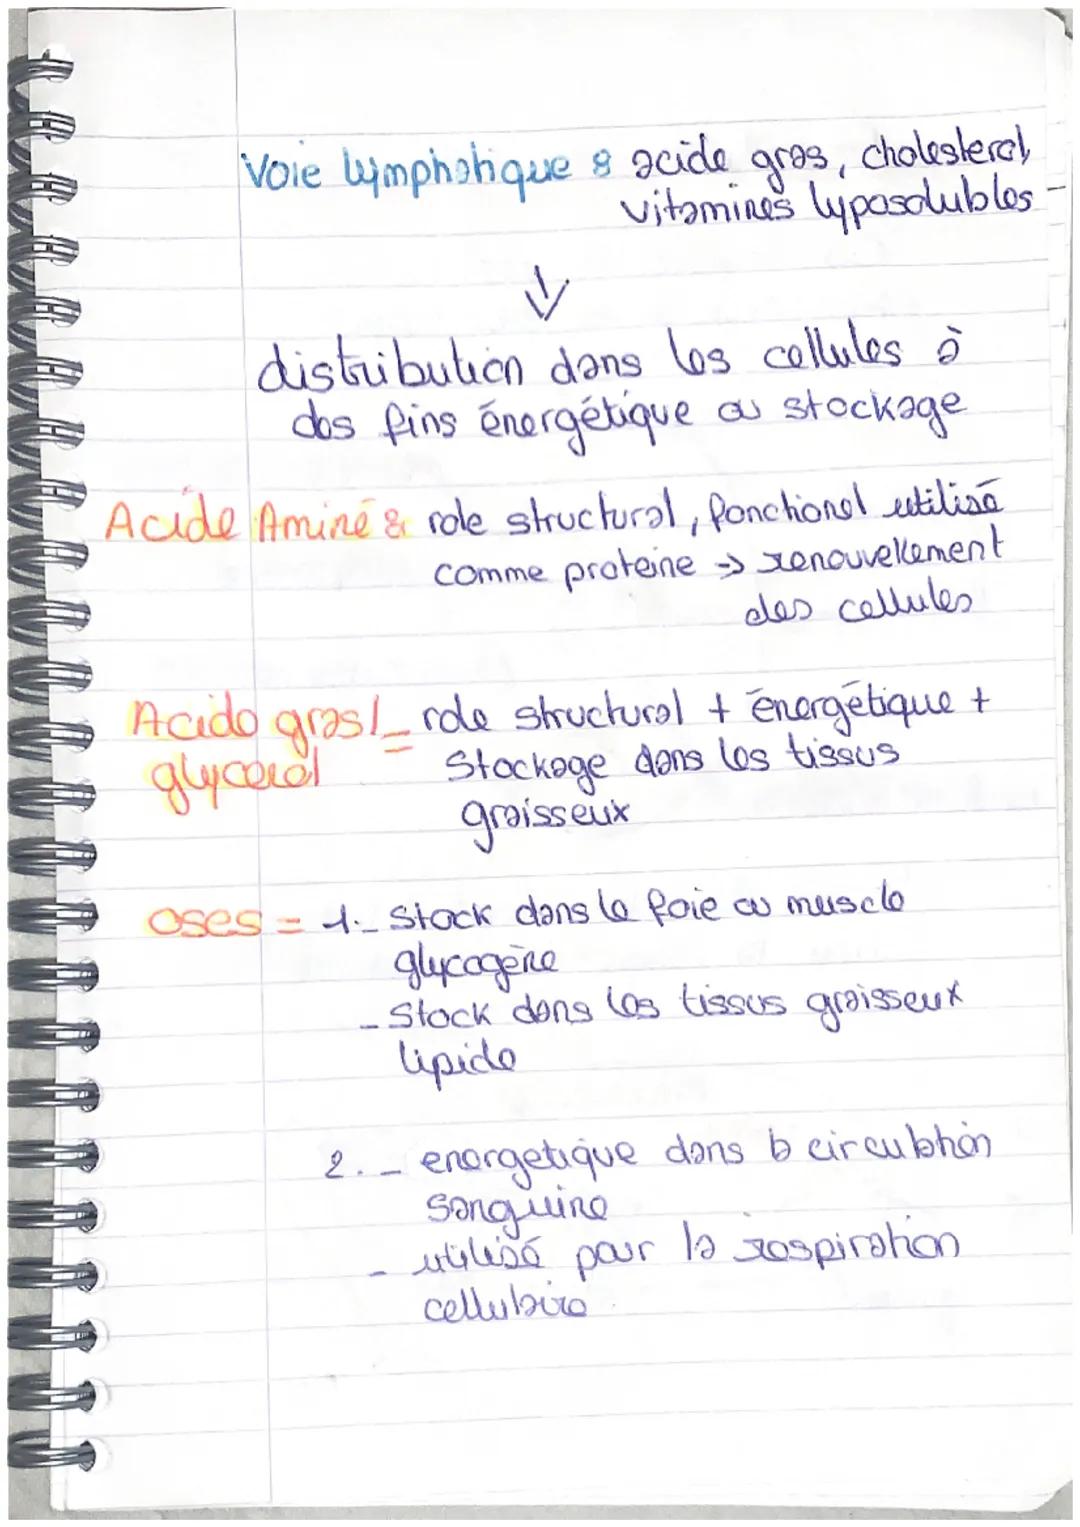 Voie lymphatique : acide gras, cholesterol,
vitamines lyposolubles
↓
distribution dans les cellules à
des fins énergétique ou stockage
Acide Aminé : role structural, fonctionel utilisé
comme proteine → renouvellement
des cellules
Acide gras/ = role structural + énergétique +
glycerol Stockage dans les tissus
graisseux
oses = 1. - Stock dans le foie ou muscle
glycogène
- Stock dans les tissus graisseux
lipide
2. - energetique dans la circulation
sanguine
- utilisé pour la respiration
cellulaire